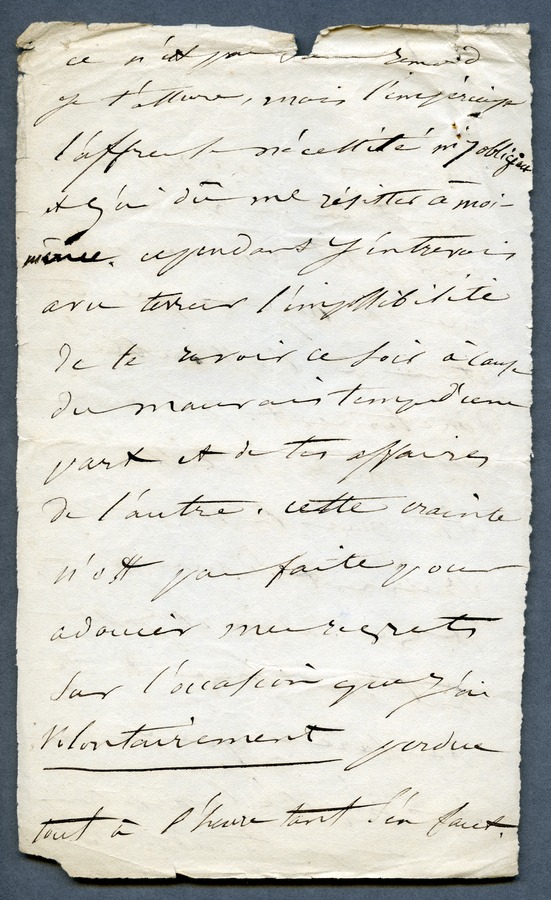 ce n'est pas sans remord
je t'assure, mais l'impérieuse
l'affreuse nécessité m'y obligeait
et j'ai dû me résister à moi-
même. cependant j'entrevois
avec terreur l'impossibilité
de te revoir ce soir à cause
du mauvais temps d'une
part et de tes affaires
de l'autre. cette crainte
n'est pas faite pour
adoucir mes regrets
sur l'occasion que j'ai
volontairement perdue
tout à l'heure tant s'en faut.